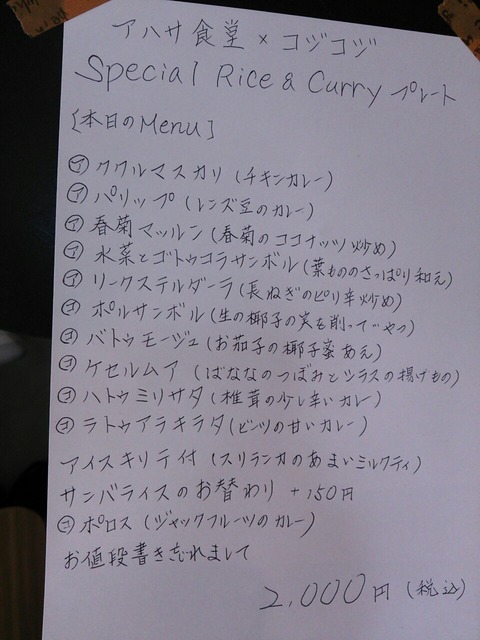 アハサ食堂 × コジコジ
Special Rice & Curry プレート
[本日のMenu]
㋐ ククルマスカリ (チキンカレー)
㋐ パリップ (レンズ豆のカレー)
㋐ 春菊マッルン (春菊のココナッツ炒め)
㋐ 水菜とゴトゥコラサンボル (葉もののさっぱり和え)
㋐ リークステルダーラ (長ねぎのピリ辛炒め)
㋙ ポルサンボル (生の椰子の実を削ってやつ)
㋙ バトゥモージュ (お茄子の椰子蜜あえ)
㋙ ケセルムア (ばななのつぼみとシラスの揚げもの)
㋙ ハトゥミリサタ (椎茸の少し辛いカレー)
㋙ ラトゥアラキラタ (ビーツの甘いカレー)
アイスキリテ付 (スリランカのあまいミルクティ)
サンバライスのお替わり +150円
㋙ ポロス (ジャックフルーツのカレー)
お値段書き忘れまして
2,000円 (税込)